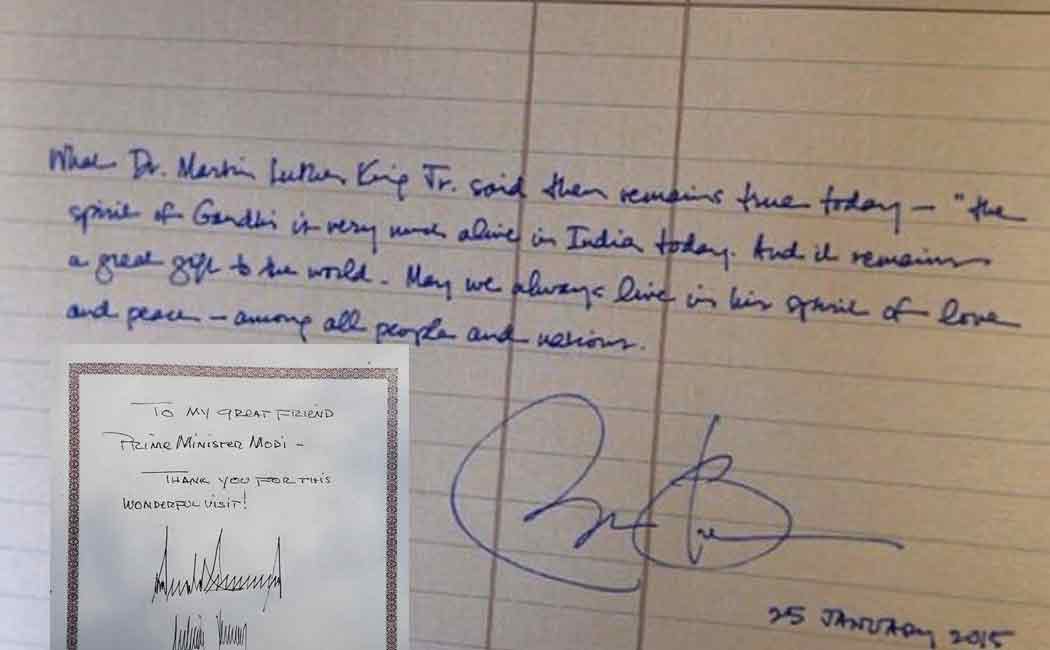 What Dr. Martin Luther King Jr. said then remains true today – "the
spirit of Gandhi is very much alive in India today. And it remains
a great gift to the world. May we always live in his spirit of love
and peace – among all people and nations.
25 JANUARY 2015
TO MY GREAT FRIEND
PRIME MINISTER MODI –
THANK YOU FOR THIS
WONDERFUL VISIT!